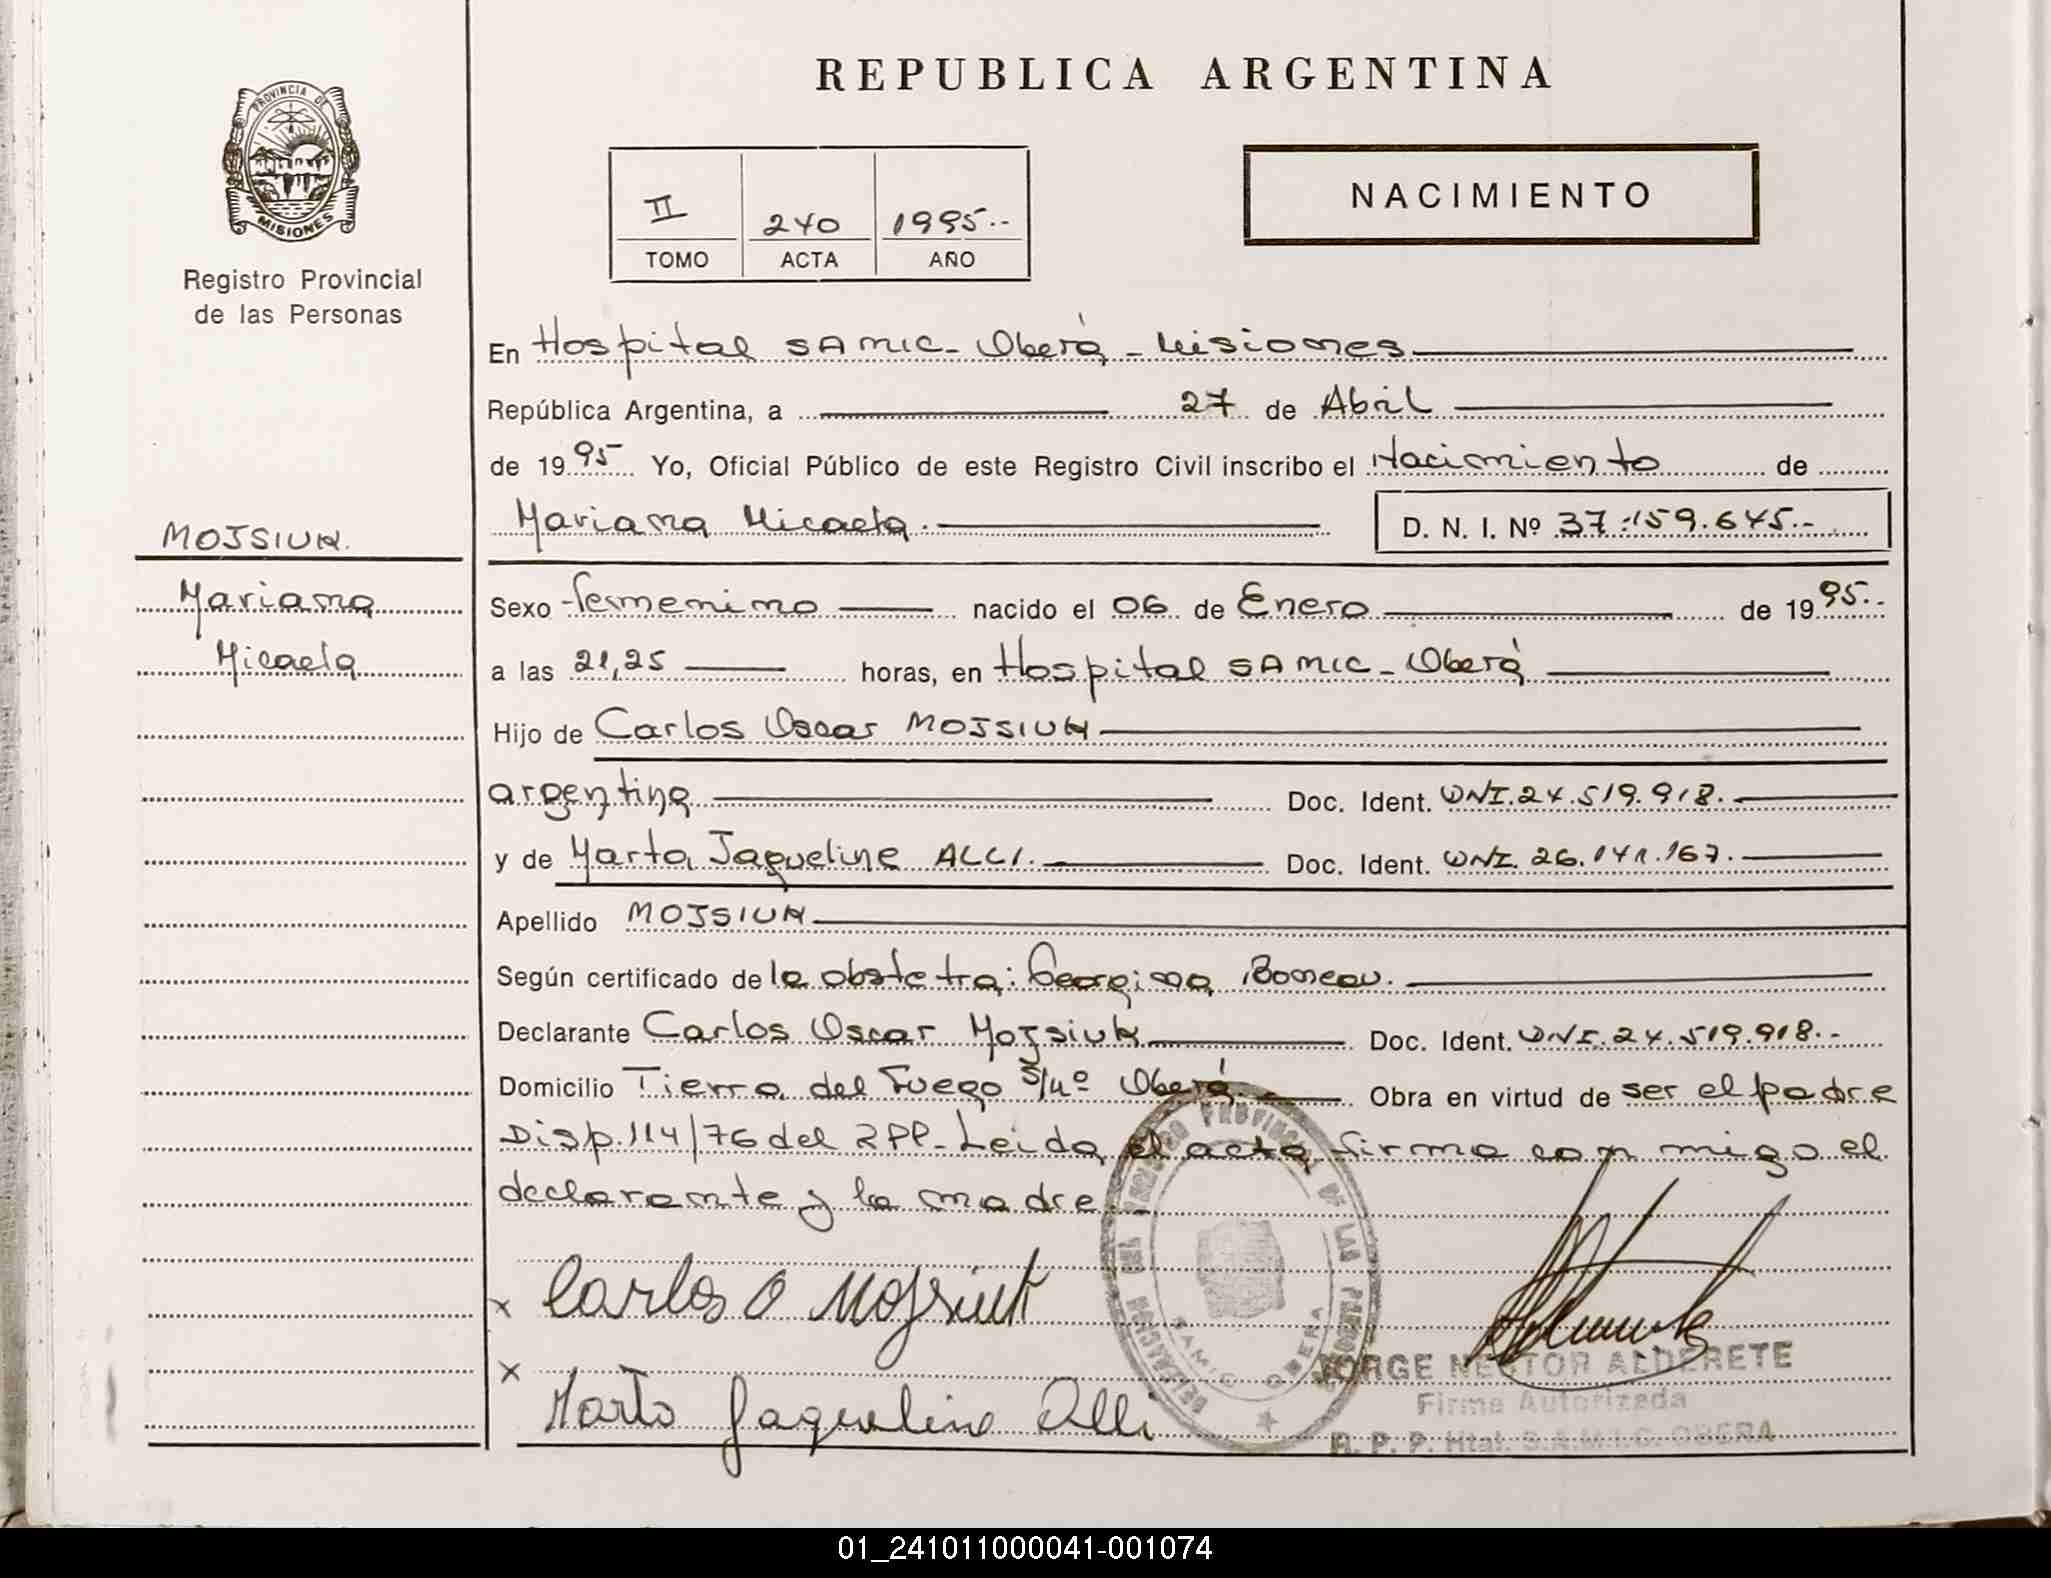 REPUBLICA ARGENTINA
PROVINCIA DE
MISIONES
Registro Provincial
de las Personas
II 240 1995.-
TOMO ACTA AÑO
NACIMIENTO
En Hospital SAMIC - Oberá - Misiones
República Argentina, a 27 de Abril
de 1995 Yo, Oficial Público de este Registro Civil inscribo el Nacimiento de
Mariana Micaela.
D. N. I. Nº 37.159.645.-
MOJSIUK.
Mariana
Micaela
Sexo femenino nacido el 06 de Enero de 1995.-
a las 21,25 horas, en Hospital SAMIC - Oberá
Hijo de Carlos Oscar MOJSIUK
argentina Doc. Ident. DNI. 24.519.918.
y de Marta Jaqueline ALLI. Doc. Ident. DNI. 26.141.167.
Apellido MOJSIUK
Según certificado de la obstetra: Georgina Boneau.
Declarante Carlos Oscar Mojsiuk Doc. Ident. DNI. 24.519.918.-
Domicilio Tierra del Fuego S/Nº Oberá Obra en virtud de ser el padre
Disp. 114/76 del RPP - Leida el acta firma con migo el
declarante y la madre
x Carlos O Mojsiuk
x Marta Jaquelina Alli
DELEGACION DEL REGISTRO PROVINCIAL DE LAS PERSONAS
S.A.M.I.C. OBERA
JORGE NESTOR ALDERETE
Firma Autorizada
R. P. P. Htal. S.A.M.I.C. OBERA
01_241011000041-001074